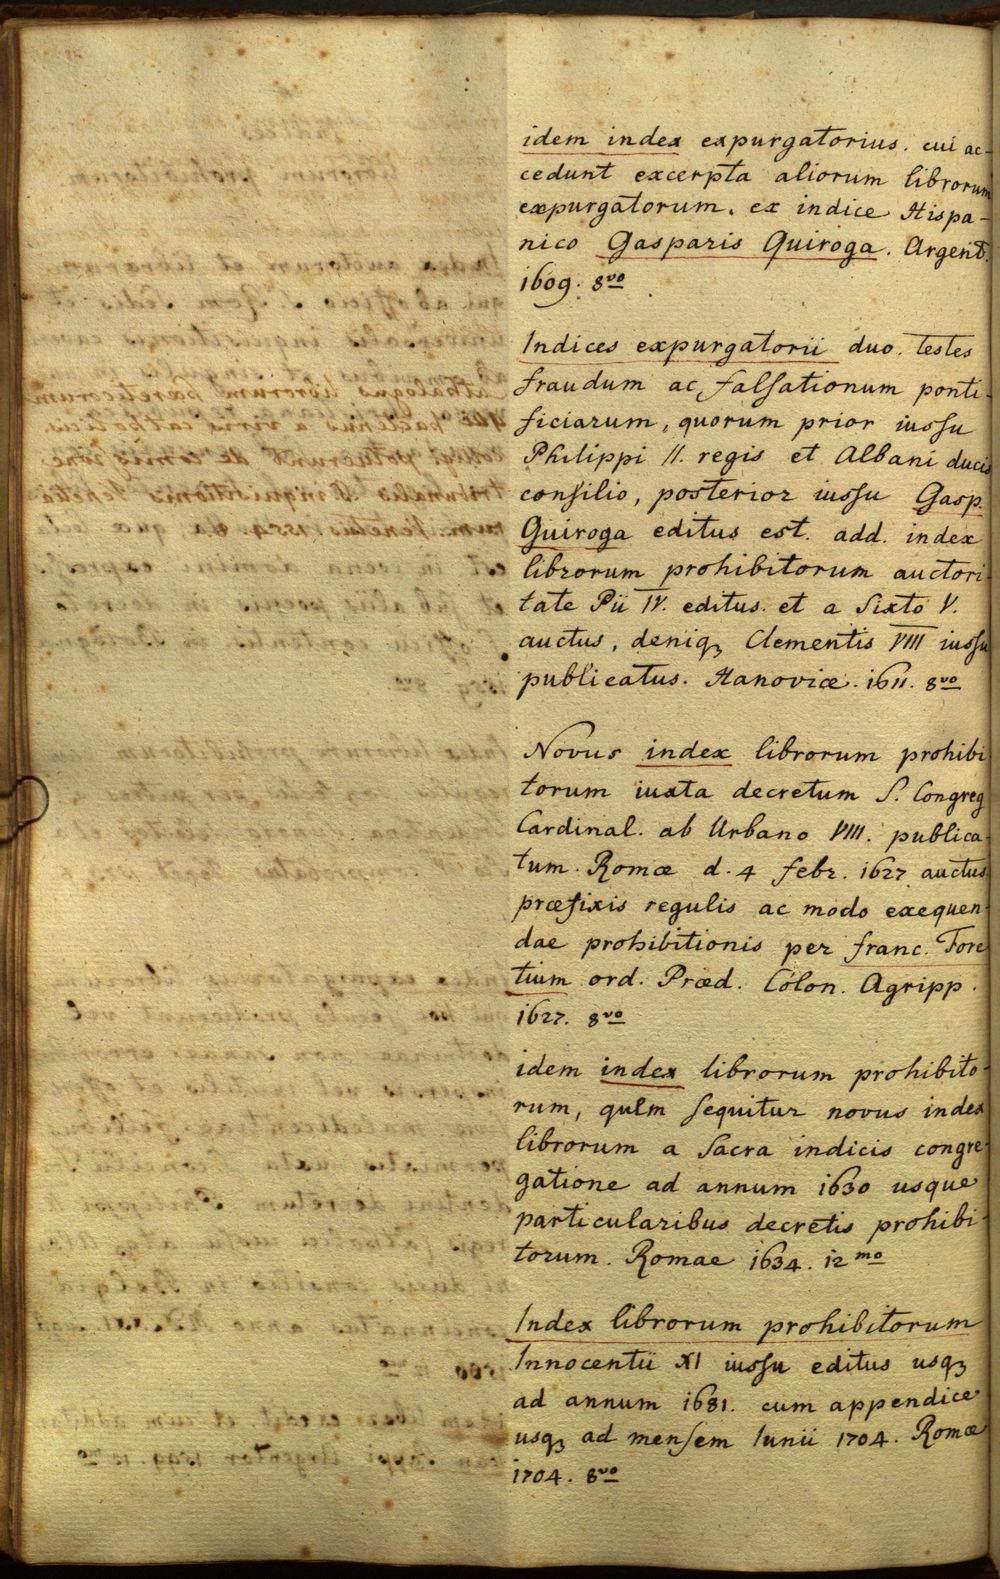 idem index expurgatorius. cui ac-
cedunt excerpta aliorum librorum
expurgatorum. ex indice Hispa-
nico Gasparis Quiroga. Argent.
1609. 8vo
Indices expurgatorii duo. testes
fraudum ac falsationum ponti-
ficiarum, quorum prior iussu
Philippi II. regis et Albani ducis
consilio, posterior iussu Gasp.
Quiroga editus est. add. index
librorum prohibitorum auctori-
tate Pii IV. editus. et a Sixto V.
auctus, deniqꝫ Clementis VIII iussu
publicatus. Hanoviæ. 1611. 8vo
Novus index librorum prohibi
torum iuxta decretum S. Congreg
Cardinal. ab Urbano VIII. publica-
tum. Romæ d. 4 febr. 1627 auctus
præfixis regulis ac modo exequen-
dae prohibitionis per franc. Tore
tium ord. Præd. Colon. Agripp.
1627. 8vo
idem index librorum prohibito-
rum, quem sequitur novus index
librorum a Sacra indicis congre-
gatione ad annum 1630 usque
particularibus decretis prohibi-
torum. Romae 1634. 12mo
Index librorum prohibitorum
Innocentii XI iussu editus usqꝫ
ad annum 1681. cum appendice
usqꝫ ad mensem Iunii 1704. Romæ
1704. 8vo